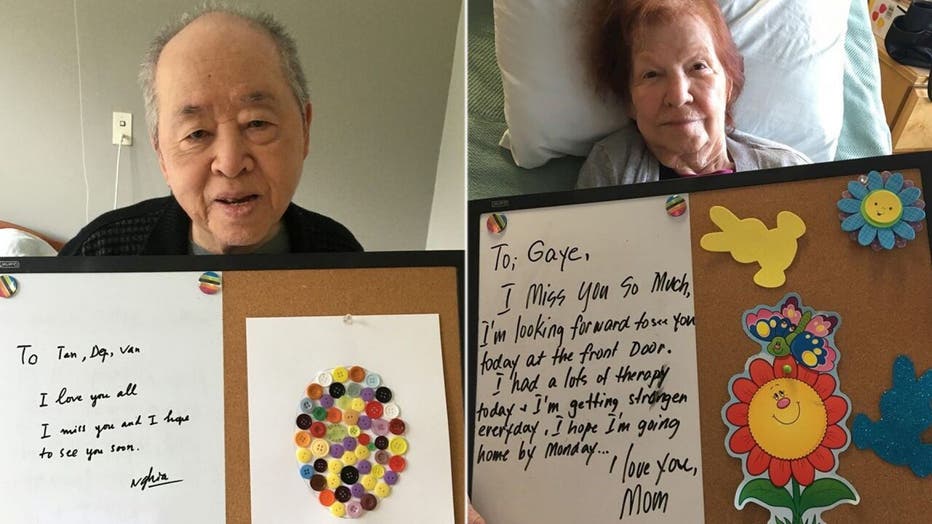 To Tan, Dep, Van
I love you all
I miss you and I hope
to see you soon.
Nghia
To; Gaye,
I Miss You So Much,
I'm looking forward to see You
today at the front Door.
I had a lots of therapy
today & I'm getting strongen
everyday. I hope I'm going
home by Monday...
I love you,
Mom